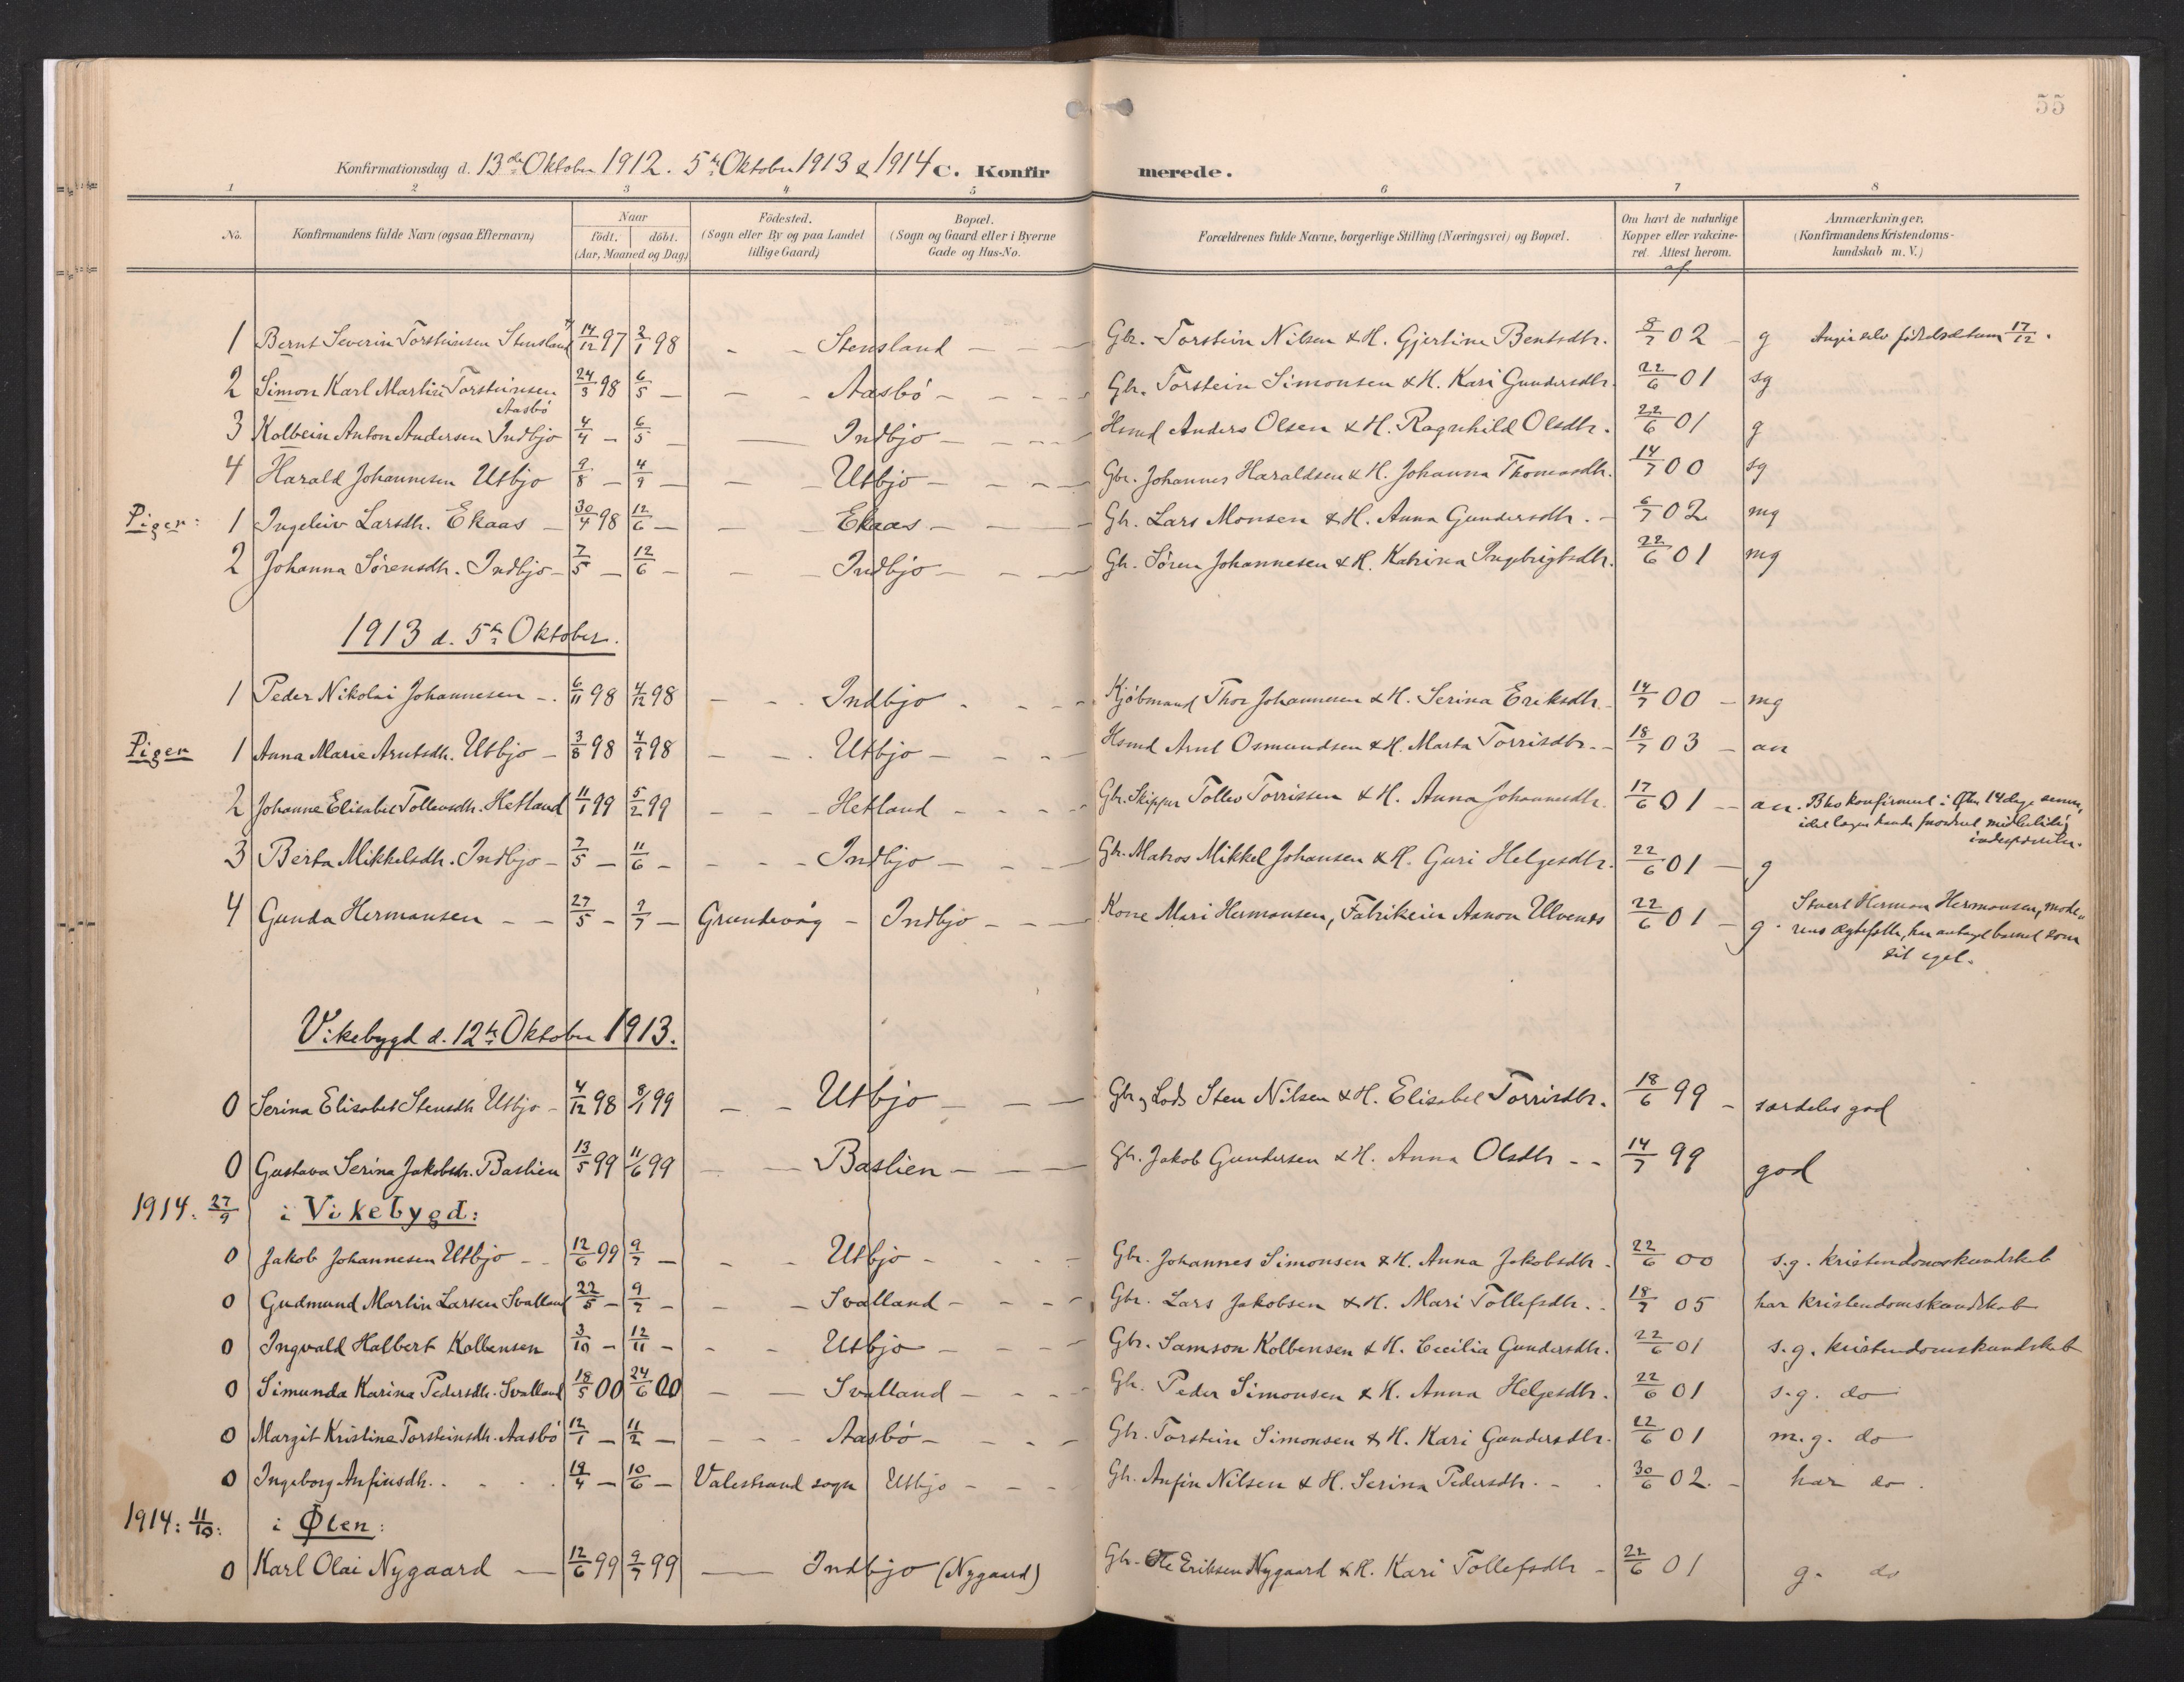 55
Konfirmationsdag d. 13de Oktober 1912. 5te Oktober 1913 & 1914 C. Konfirmerede.
1 2 3 4 5 6 7 8
No. Konfirmandens fulde Navn (ogsaa Efternavn) Naar födt. döbt. (Aar, Maaned og Dag) Födested. (Sogn eller By og paa Landet tillige Gaard) Bopæl. (Sogn og Gaard eller i Byerne Gade og Hus-No. Forældrenes fulde Navne, borgerlige Stilling (Næringsvei) og Bopæl. Om havt de naturlige Kopper eller vakcineret. Attest herom. af Anmærkninger. (Konfirmandens Kristendomskundskab m. V.)
1 Bernt Severin Torsteinsen Stensland 14/12 97 2/1 98 - - Stensland - - Gbr. Torstein Nilsen & H. Gjertine Bentsdtr. 8/7 02 - g Angir selv födselsdatum 17/12.
2 Simon Karl Martin Torsteinsen Aasbö 24/3 98 6/5 - - - Aasbö - - Gbr. Torstein Simonsen & H. Kari Gundersdtr. 22/6 01 sg
3 Kolbein Anton Andersen Indbjo 4/4 - 6/5 - - Indbjo - - Hsmd Anders Olsen & H. Ragnhild Olsdtr. 22/6 01 g
4 Harald Johannesen Utbjo 9/8 - 4/9 - - - Utbjo - - Gbr. Johannes Haraldsen & H. Johanna Thomasdtr. 14/7 00 sg
Piger: 1 Ingeleiv Larsdtr. Ekaas - 30/4 98 12/6 - - - Ekaas - - Gbr. Lars Monsen & H. Anna Gundersdtr. - 6/7 02 mg
2 Johanna Sörensdtr. Indbjo - 7/5 - 12/6 - - - Indbjo - - Gbr. Sören Johannesen & H. Katrina Ingebrigtsdtr. 22/6 01 mg
1913 d. 5te Oktober.
1 Peder Nikolai Johannesen - 6/11 98 4/12 98 - - Indbjo - - Kjöbmand Thor Johannesen & H. Serina Eriksdtr. 14/7 00 - mg
Piger 1 Anna Marie Arntsdtr. Utbjo - 3/8 98 4/9 98 - - Utbjo - - Hsmd Arnt Osmundsen & H. Marta Torrisdtr. - 18/7 03 - an
2 Johanne Elisabet Tollevsdtr. Hetland 11/1 99 5/2 99 - - Hetland - - Gbr. Skipper Tollev Torrissen & H. Anna Johannesdtr. 17/6 01 - an. Blev konfirmeret i Ölen 14 dage senere,
idet
3 Berta Mikkelsdtr. Indbjo - 7/5 - 11/6 - - - Indbjo - - Gbr. Matros Mikkel Johansen & H. Guri Helgesdtr. 22/6 01 - g
4 Gunda Hermansen - - 27/5 - 9/7 - Grundevåg - Indbjo - - Kone Mari Hermansen, Fabrikeier Aanon Ulvenes 22/6 01 - g. Stuert Herman Hermansen, moderens ægtefælle, har antaget barnet som
sit eget.
Vikebygd d. 12te Oktober 1913.
0 Serina Elisabet Stensdtr Utbjo - 4/12 98 8/1 99 - - Utbjo - - Gbr. & Lods Sten Nilsen & H. Elisabet Torrisdtr. 18/6 99 - særdeles god
0 Gustava Serina Jakobsdtr. Baslien 13/5 99 11/6 99 - - Baslien - - Gbr. Jakob Gundersen & H. Anna Olsdtr - - 14/7 99 god
1914. 27/9 i Vikebygd:
0 Jakob Johannesen Utbjo - 12/6 99 9/7 - - - Utbjo - - Gbr. Johannes Simonsen & H. Anna Jakobsdtr. 22/6 00 s.g. kristendomskundskab
0 Gudmund Martin Larsen Svalland 22/5 - 9/7 - - Svalland - - Gbr. Lars Jakobsen & H. Mari Tollefsdtr. 18/7 05 har kristendomskundskab
0 Ingvald Halbert Kolbensen 3/10 - 12/11 - - - Utbjo - - Gbr. Samson Kolbensen & H. Cecilia Gundersdtr. 22/6 01 s.g. kristendomskundskab
0 Simunda Karina Pedersdtr. Svalland 18/5 00 24/6 00 - - Svalland - - Gbr. Peder Simonsen & H. Anna Helgesdtr. 22/6 01 s.g. do
0 Margit Kristine Torsteinsdtr. Aasbö 12/1 - 11/2 - - - Aasbö - - Gbr. Torstein Simonsen & H. Kari Gundersdtr. 22/6 01 m.g. do
0 Ingeborg Anfinsdtr. 19/4 - 10/6 - Valestrand sogn Utbjo - - Gbr. Anfin Nilsen & H. Serina Pedersdtr. - 30/6 02. - har do.
1914: 11/10: i Ølen:
0 Karl Olai Nygaard - 12/6 99 9/7 99 - Indbjo (Nygaard) Gbr. Ole Eriksen Nygaard & H. Kari Tollefsdtr - 22/6 01 g. do